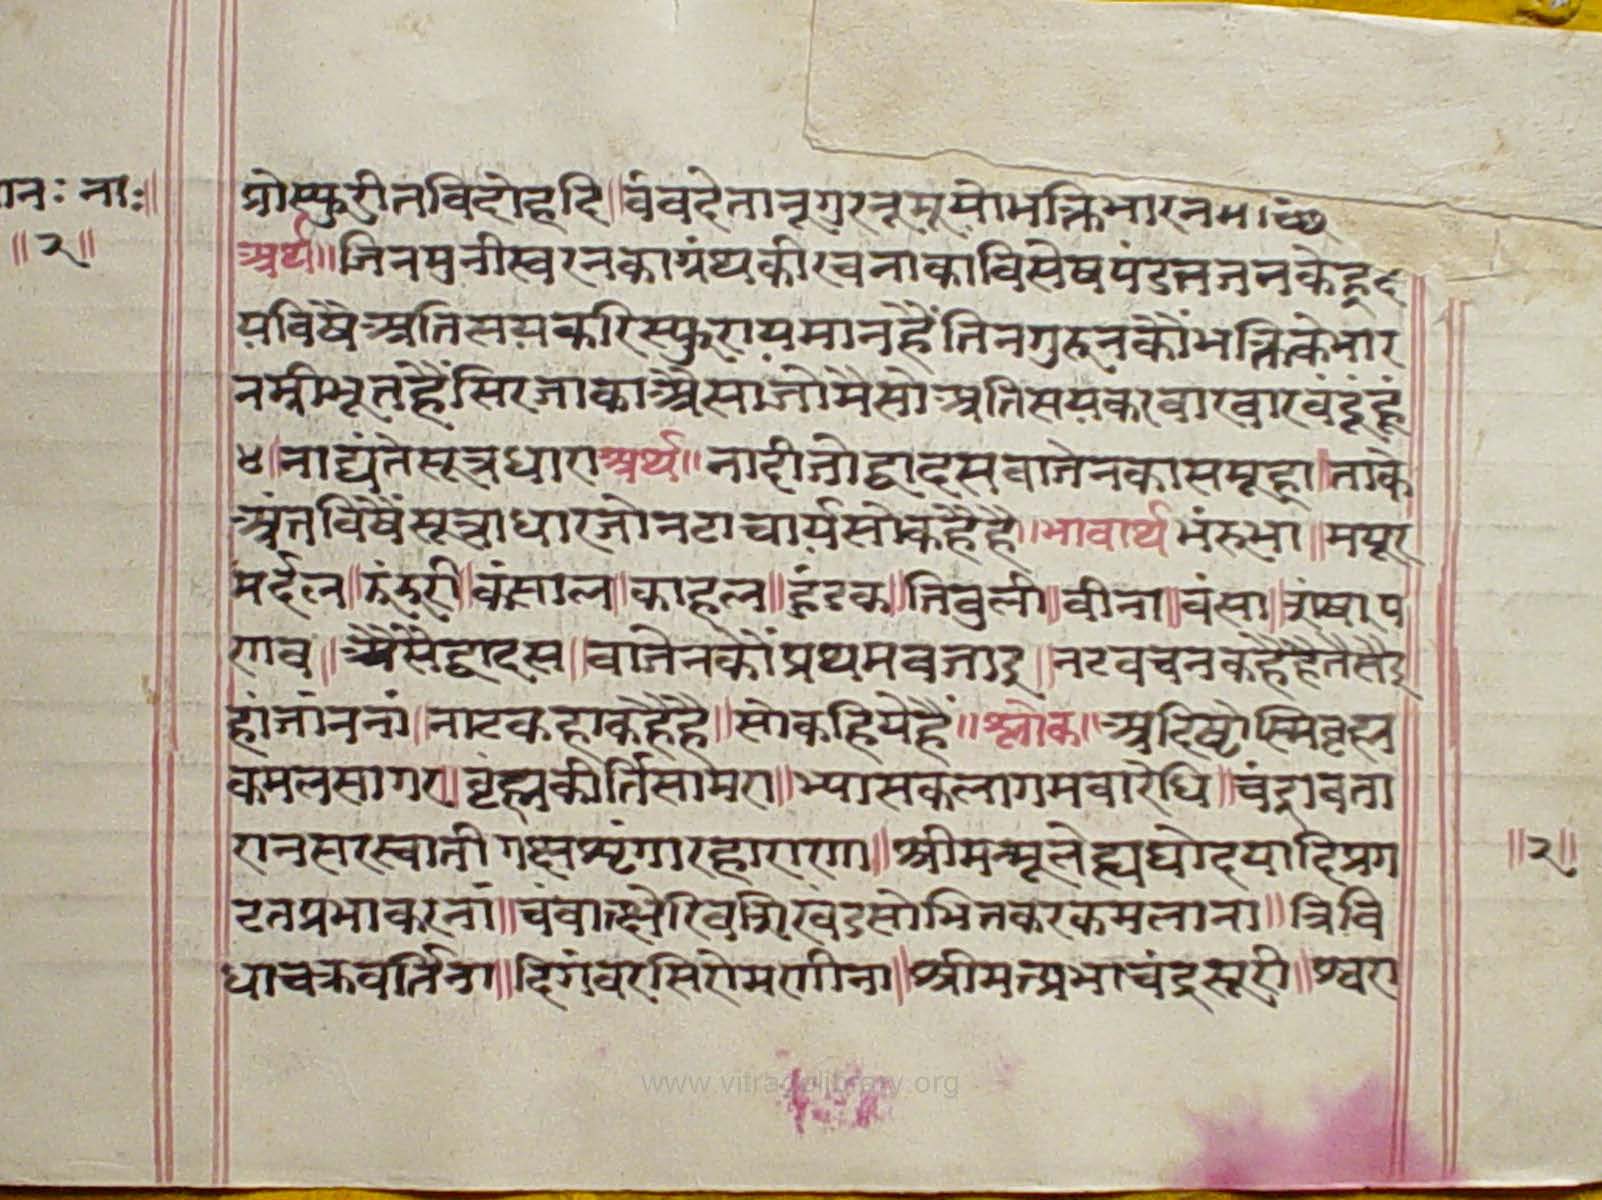 ानः नाः॥ प्रोस्फुरीतविदोहृदि॥वंवदेतानूगुरनूमूयोभक्तिभारनमाः
॥२॥ अर्थ॥जिनमुनीस्वरनकाग्रंथकीरचनाकाविसेषपंडतजनकेहृद
यविषैअतिसयकरिस्फुरायमानहैंतिनगुरूनकौंभक्तिकेभार
नम्रीभूतहैंसिरजाकाअैसाजोमैसोअतिसयकरवारवारवंदूंहूं
४॥नाद्यंतेसूत्रधारा अर्थ॥नादीजोद्वादसवाजेनकासमूहा॥ताके
अंतविषैंसूत्राधारजोनटाचार्यसोकहैहै॥भावार्थ भंरुभा॥मयूर
मर्दल॥झंझरी॥कंसाल॥काहल॥हुंडक॥तिवुली॥वीना॥वंसा॥संषाप
णव॥अैसैंद्वादस॥वाजेनकौंप्रथमवजाइ॥नटवचनकहैहैतैसैइ
हांजांननां॥नाटकहाकहैहै॥सोकहियेहैं॥श्लोक॥अदिष्टोस्मिवृह्म
कमलसागरा॥वृंह्मकीर्तिसामरा॥भ्यासकलागमवारेधि॥चंद्रावता
रानसरस्वातीगछशृंगारहाराणा॥श्रीमन्मूलेह्यघोदयादिप्रग
टतप्रभाकरनां॥ सोभितकरकमलाना॥त्रिवि
धाचक्रवर्तिना॥दिगंवरसिरोमणीना॥श्रीमत्प्रभाचंद्रसूरी॥श्वरा
॥२॥
www.vitragvlibrary.org